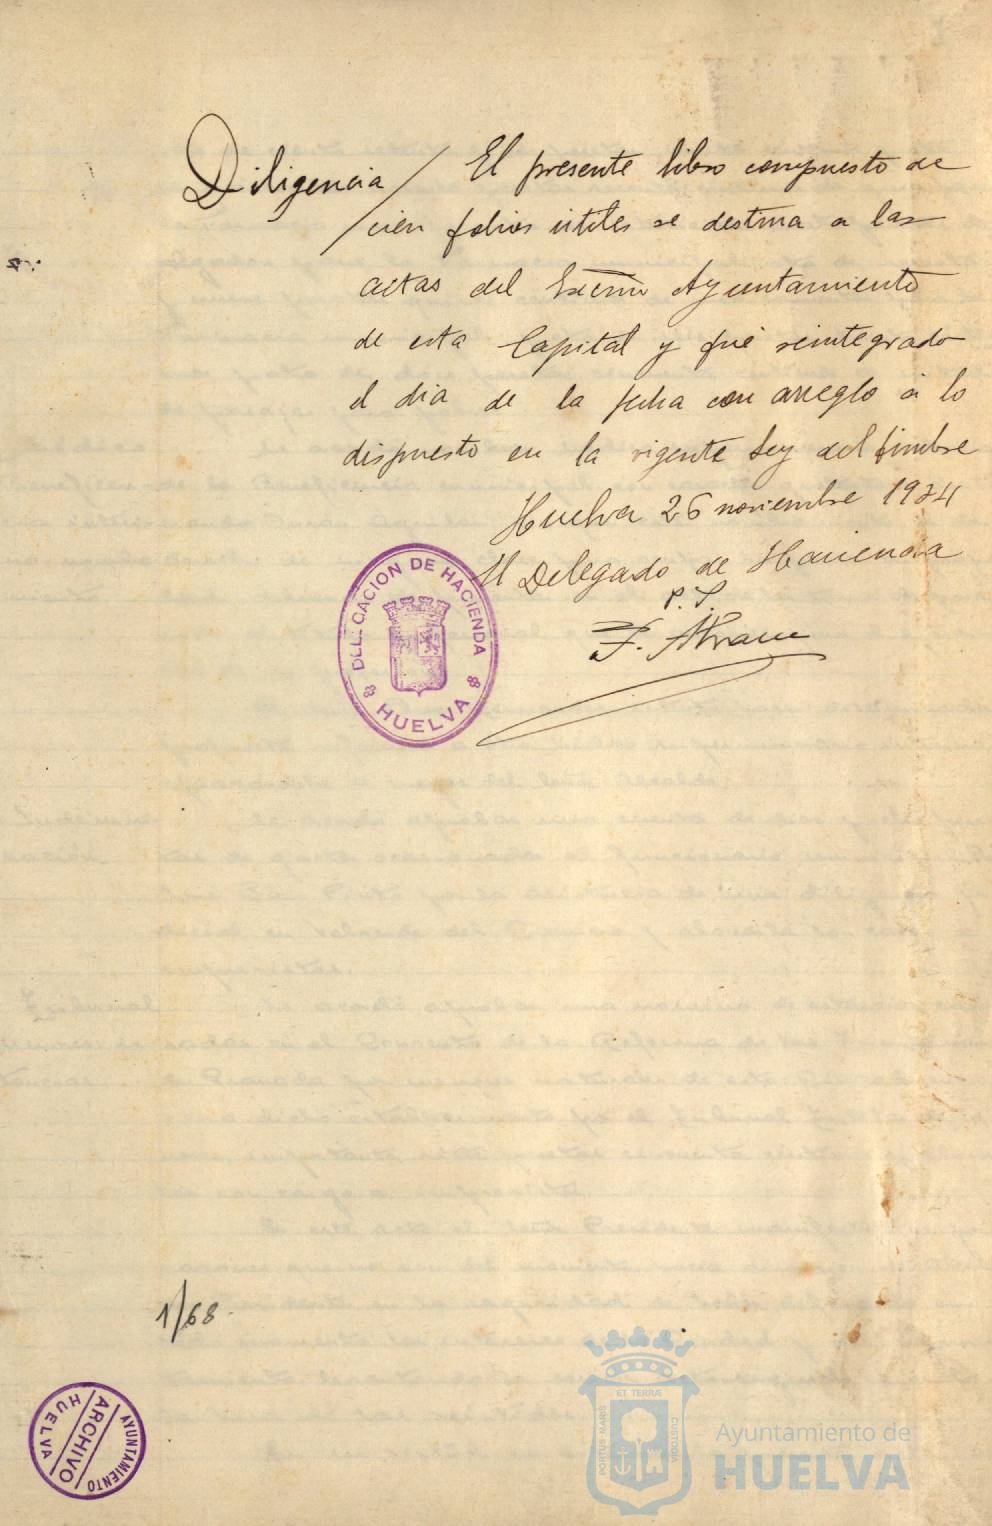 Diligencia / El presente libro compuesto de
cien folios útiles se destina a las
actas del Excmo Ayuntamiento
de esta Capital y fué reintegrado
el dia de la fecha con arreglo á lo
dispuesto en la vigente Ley del timbre
Huelva 26 noviembre 1934
El Delegado de Hacienda
P. S.
F.
DELEGACION DE HACIENDA
HUELVA
1/68.
AYUNTAMIENTO
ARCHIVO
HUELVA
PORTUS MARIS
ET TERRÆ
CUSTODIA
Ayuntamiento de
HUELVA